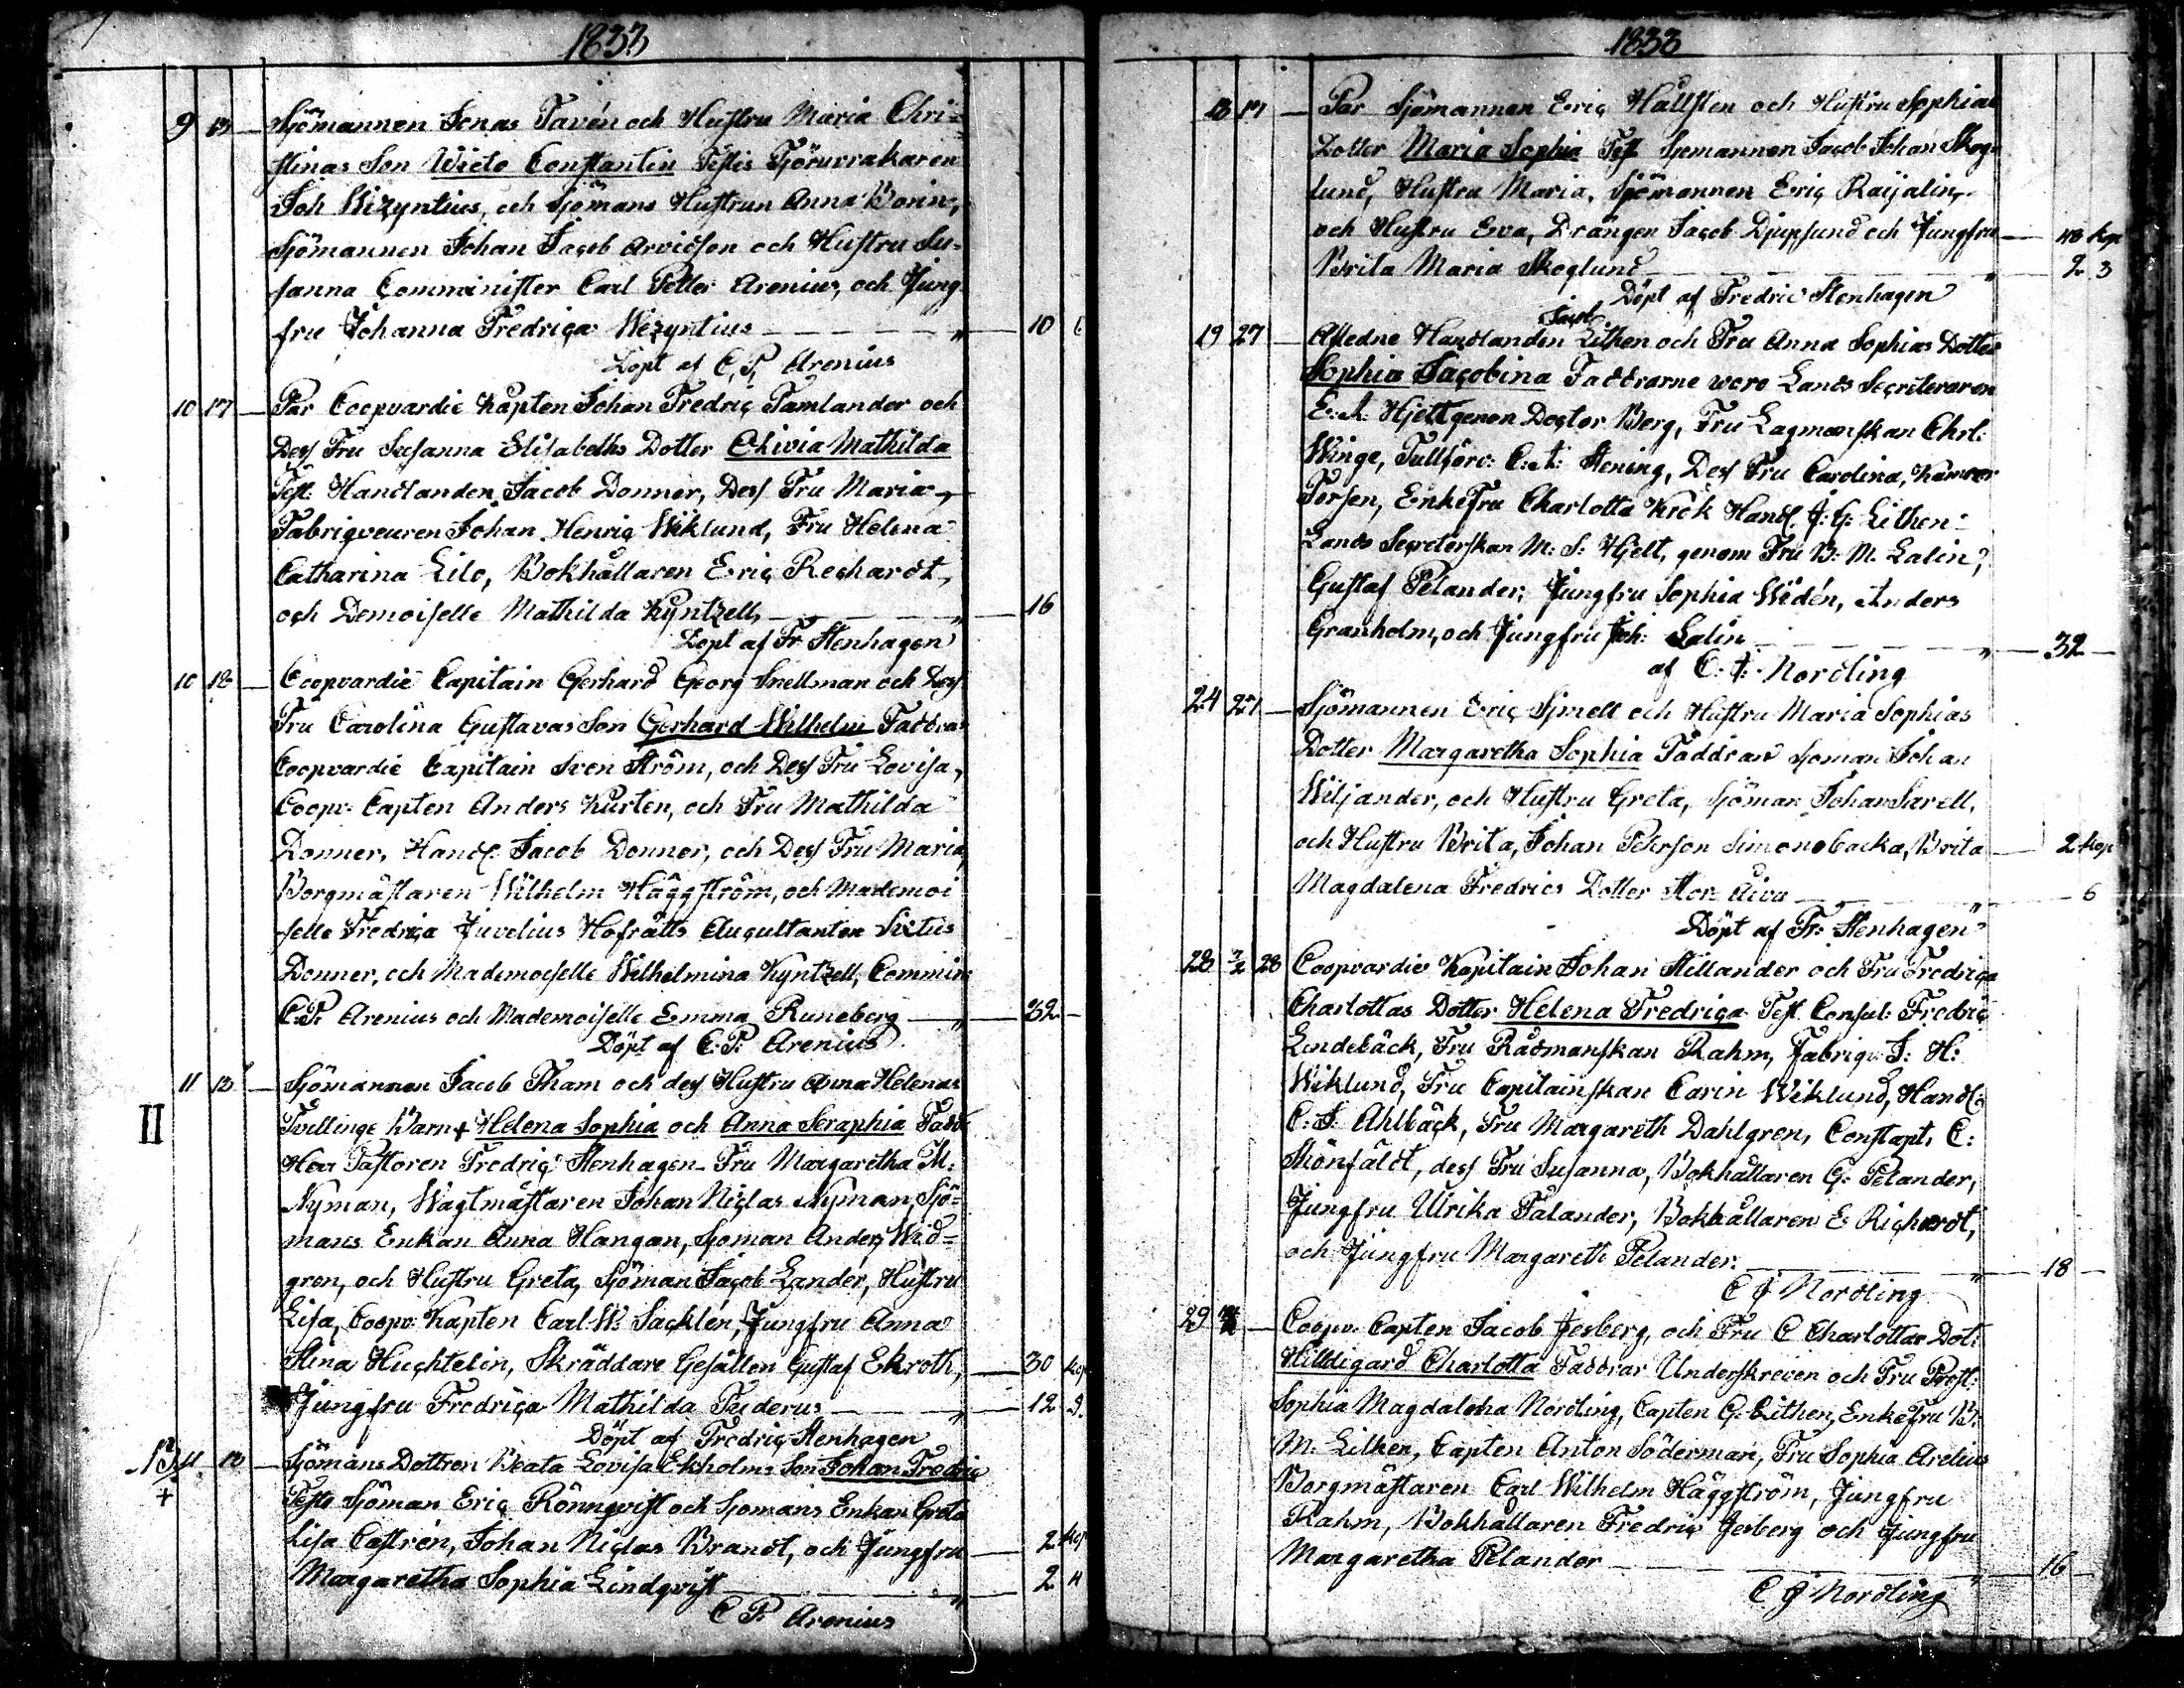 1833
9 13 Sjömannen Jonas Tavén och Hustru Maria Chri-
stinas Son Victo Constantin Testis Sjöruvrakaren
Joh Wizyntius, och Sjömans Hustrun Anna Borin,
Sjömannen Johan Jacob Arvidson och Hustru Su-
sanna Comminister Carl Petter Arenius, och Jung
fru Johanna Fredrica Wezyntius — " — 10 6
Döpt af C. P. Arenius
10 17 Par Coopvardie Kapten Johan Fredric Tamlander och
Dess Fru Susanna Elisabeths Dotter Olivia Mathilda
Test: Handlanden Jacob Donner, Dess Fru Maria,
Fabriqveuren Johan Henric Wiklund, Fru Helena
Catharina Lilo, Bokhållaren Eric Rechardt,
och Demoiselle Mathilda Kyntzell — " — 16
Döpt af Fr Stenhagen
10 12 Coopvardie Capitain Gerhard Georg Snellman och Dess
Fru Carolina Gustavas Son Gerhard Wilhelm Faddrar
Coopvardie Capitain Sven Ström, och Dess Fru Lovisa,
Coopv: Capten Anders Kurten, och Fru Mathilda
Donner, Handl: Jacob Donner, och Dess Fru Maria,
Borgmästaren Wilhelm Häggström, och Mademoi
selle Fredrica Juvelius Hofrätts Auscultanten Victus
Donner, och Mademoiselle Wilhelmina Kyntzell, Commin:
C. P. Arenius och Mademoiselle Emma Runeberg — " — 32 —
Döpt af C. P. Arenius
11 13 Sjömannen Jacob Tham och dess Hustru Anna Helenas
II Tvillinge Barn + Helena Sophia och Anna Seraphia Fadd
Herr Pastoren Fredric Stenhagen Fru Margaretha M:
Nyman, Wagtmästaren Johan Niclas Nyman, Sjö-
mans Enkan Anna Hangan, Sjoman Anders Wid-
gren, och Hustru Greta, Sjöman Jacob Lander, Hustru
Lisa, Coopv: Kapten Carl W. Sacklén, Jungfru Anna
Stina Huchtelin, Skräddare Gesällen Gustaf Ekroth, — 30 kop
Jungfru Fredrica Mathilda Tuderus — " — 12 S.
Döpt af Fredric Stenhagen
11 13 Sjömans Dottren Beata Lovisa Ekholms Son Johan Fredric
+ Testis Sjöman Eric Rönnqvist och Sjomans Enkan Greta
Lisa Castrén, Johan Niclas Brandt, och Jungfru — 2 kop
Margaretha Sophia Lindqvist — " — 2
C P. Arenius
1833
13 17 Par Sjömannen Eric Hällsten och Hustru Sophias
Dotter Maria Sophia Test Sjemannen Jacob Johan Skog-
lund, Hustru Maria, Sjömannen Eric Raijalin,
och Hustru Eva, Drängen Jacob Djupsund och Jungfru — 40 kop
Brita Maria Skoglund — " — 2 3
Döpt af Fredric Stenhagen
Jacob
19 27 Afledne Handlanden Lithen och Fru Anna Sophias Dotter
Sophia Jacobina Faddrarne voro Lands Secreteraren
E: A: Hjelt genom Doctor Berg, Fru Lagmanskan Chrl:
Winge, Tullförv: C: A: Stening, Dess Fru Carolina, Kamrer
Forsen, Enkefru Charlotta Krok Handl. J: G: Lithen
Lands Secreterskan M: S: Hjelt, genom Fru B: M: Lalin,
Gustaf Pelander, Jungfru Sophia Widén, Anders
Granholm, och Jungfru Joh: Lalin — " — 32 —
af C: J: Nordling
24 27 Sjömannen Eric Smell och Hustru Maria Sophias
Dotter Margaretha Sophia Faddrar Sjoman Johan
Wiljander, och Hustru Greta, Sjöman Johan Sarell,
och Hustru Brita, Johan Peterson Simonsbacka, Brita — 2 kop
Magdalena Fredrics Dotter Stor — " — 6
Döpt af Fr: Stenhagen
28 2/2 28 Coopvardie Kapitain Johan Stillander och Fru Fredrica
Charlottas Dotter Helena Fredrica Test. Consul: Fredric
Lindebäck, Fru Rådmanskan Rahm, Fabriqv: J: H:
Wiklund, Fru Capitainskan Carin Wiklund, Handl:
C: J: Ahlbäck, Fru Margareth Dahlgren, Constapt. C:
Skönfäldt, dess Fru Susanna, Bokhållaren G: Pelander,
Jungfru Ulrika Falander, Bokhållaren E. Richardt,
och Jungfru Margareth Pelander. — " — 18 —
C J Nordling
29 Coopv: Capten Jacob Jesberg, och Fru C Charlottas Dot:
Hildigard Charlotta Faddrar Underskreven och Fru Prost:
Sophia Magdalena Nordling, Capten G: Lithen, Enkefru B:
M: Lithen, Capten Anton Söderman, Fru Sophia Arelius
Borgmästaren Carl Wilhelm Häggström, Jungfru
Rahm, Bokhållaren Fredric Jesberg och Jungfru
Margaretha Pelander — " — 16 —
C J Nordling